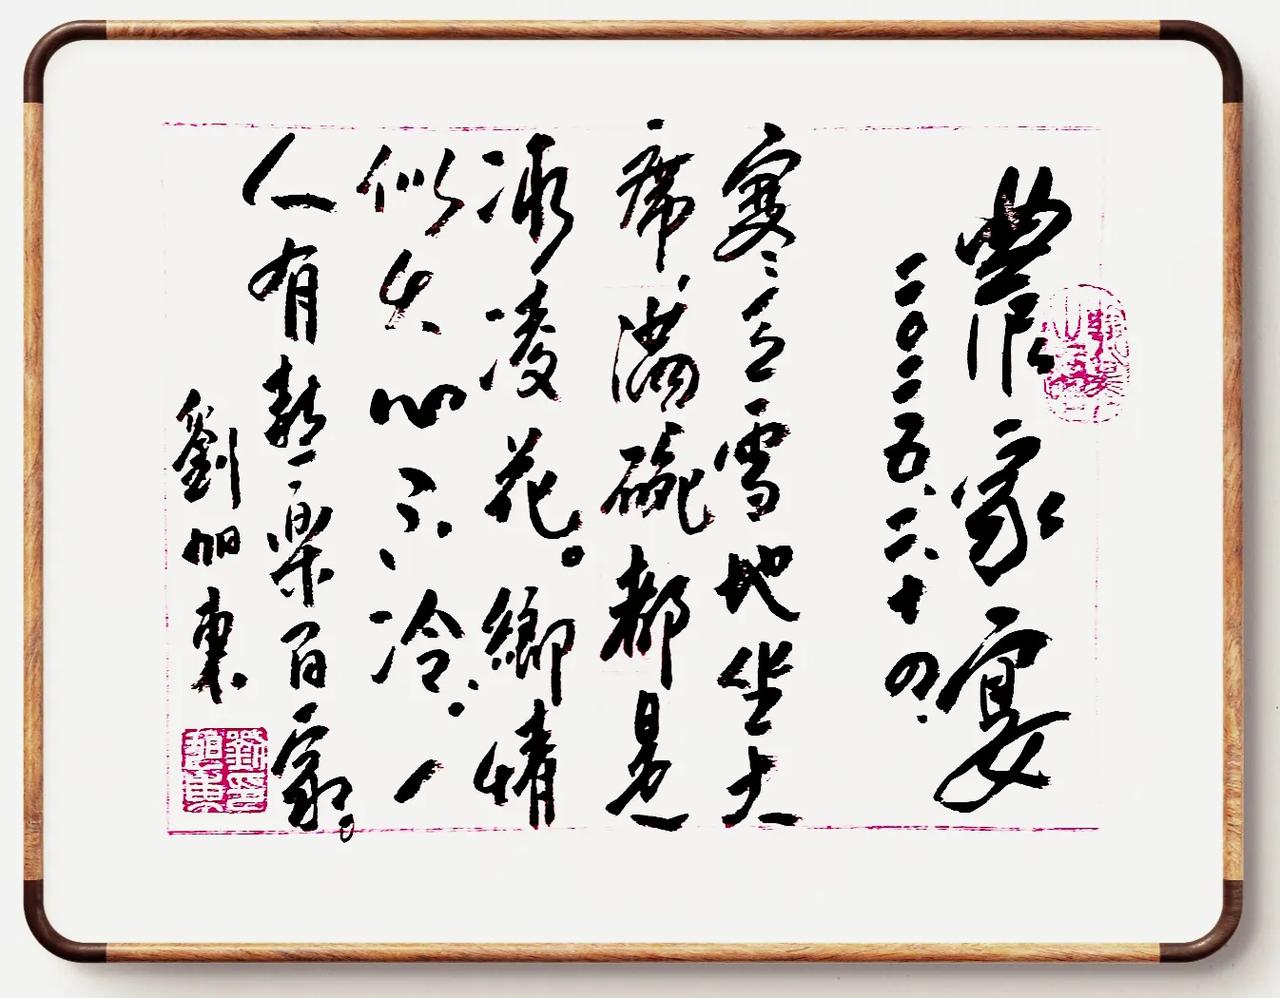 農家宴
二〇二五、二、十四.
寒雪地坐大
席、滿碗都是
冰凌花。鄉情
似火心不冷.一
人有熱樂百家。
劉旭東